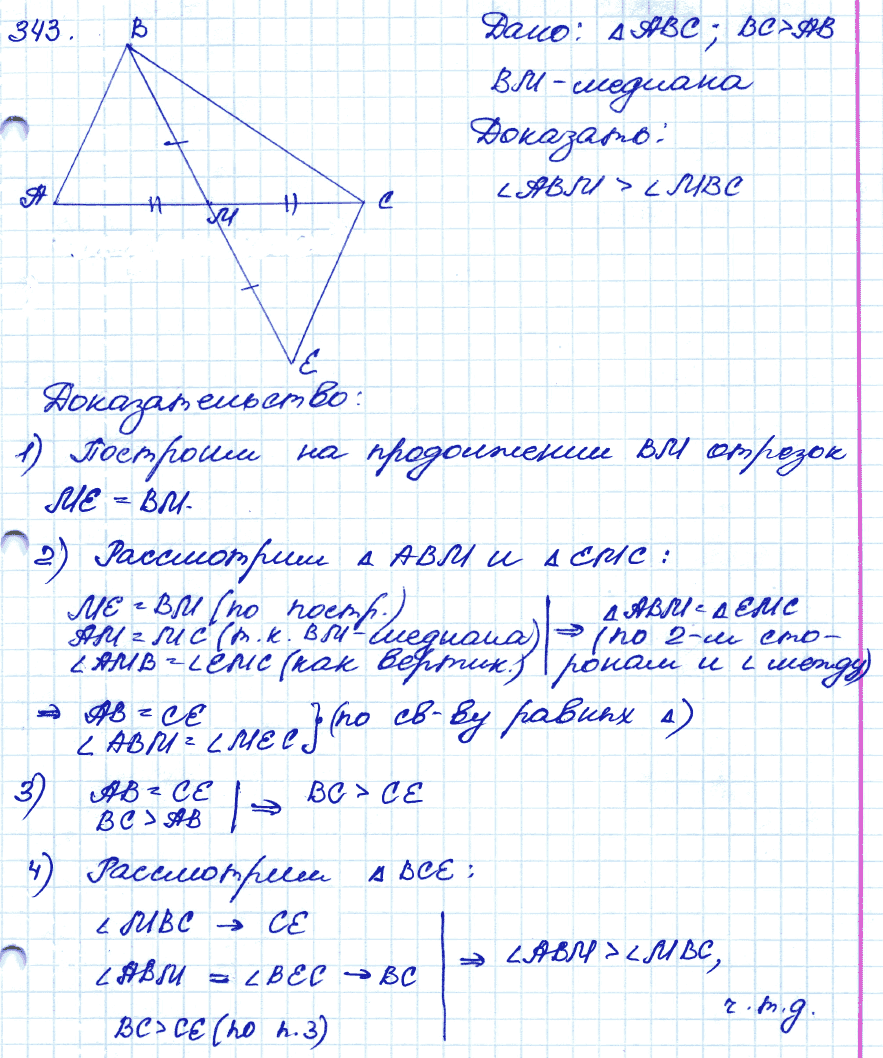 343.
B
Дано: △ABC; BC>AB
BM - медиана
Доказать:
∠ABM > ∠MBC
A
M
C
E
Доказательство:
1) Построим на продолжении BM отрезок
ME = BM.
2) Рассмотрим △ABM и △EMC:
ME = BM (по постр.)
AM = MC (т.к. BM-медиана)
∠AMB = ∠EMC (как вертик.)
⇒ △ABM = △EMC
(по 2-м сто-
ронам и ∠ между)
⇒ AB = CE
∠ABM = ∠MEC } (по св-ву равных △)
3) AB = CE
BC > AB
⇒ BC > CE
4) Рассмотрим △BCE:
∠MBC → CE
∠ABM = ∠BEC → BC
BC > CE (по п.3)
⇒ ∠ABM > ∠MBC,
ч.т.д.